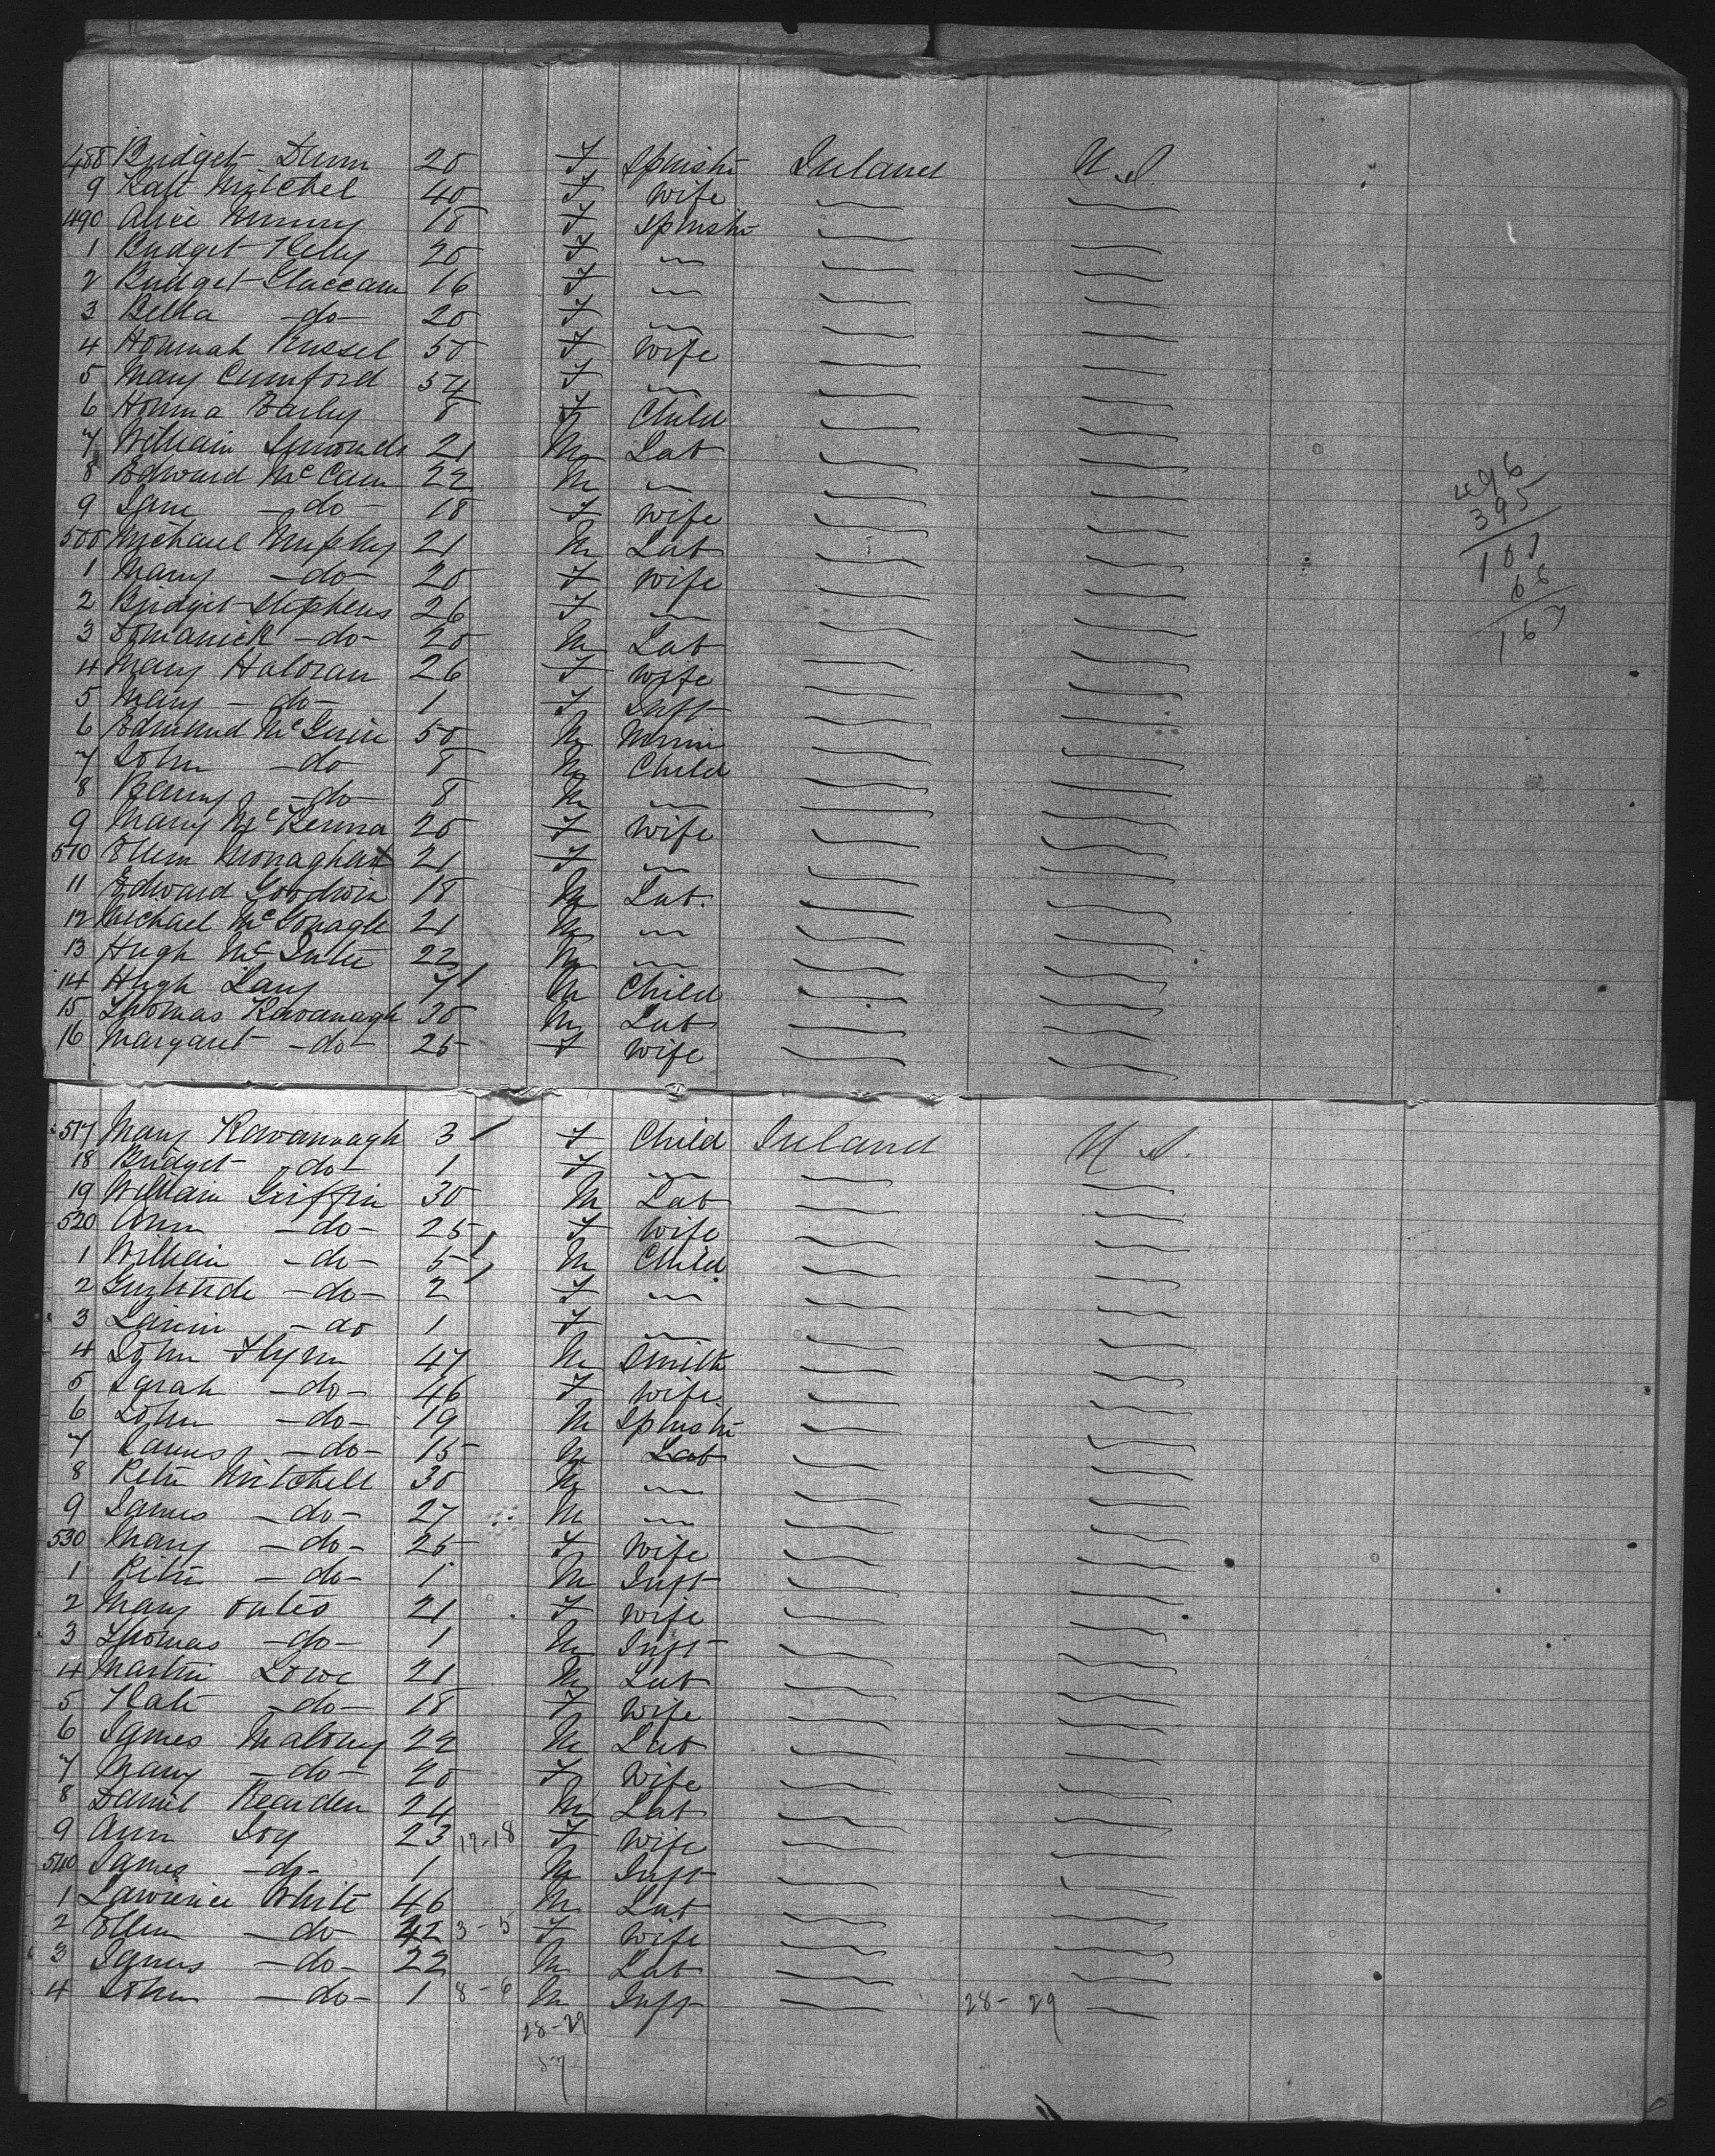 488 Bridget Dunn 20 F Spinstr Ireland U.S.
9 Kate Mitchel 40 F Wife
490 Alice Murray 18 F Spinstr
1 Bridget Kelly 20 F
2 Bridget Glaccam 16 F
3 Bella -do- 20 F
4 Honnah Russel 50 F Wife
5 Mary Cumford 54 F
6 Honna Barley 8 F Child
7 William Simonds 21 M Lab
8 Edward McCann 22 M
9 Jane -do- 18 F Wife
500 Michael Murphy 21 M Lab
1 Mary -do- 20 F Wife
2 Bridget Stephens 26 F
3 Domanick -do- 20 M Lab
4 Mary Haloran 26 F Wife
5 Mary -do- 1 F Inft
6 Edmund McGuire 50 M
7 John -do 8 M Child
8 -do- 8 M
9 Mary McKenna 20 F Wife
510 Ellen Monaghan 21 F
11 Edward Goodwin 18 M Lab.
12 Michael McGonagle 21 M
13 Hugh McIntir 22 M
14 Hugh Lang 7 M Child
15 Thomas Kavanagh 30 M Lab
16 Margaret -do- 25 F Wife
496
395
101
66
167
517 Mary Kavannagh 3 F Child Ireland U.S.
18 Bridget -do- 1 F
19 William Griffin 30 M Lab
520 Ann -do- 25 F Wife
1 William -do- 5 M Child
2 Gurtride -do- 2 F
3 -do 1 F
4 John Flynn 47 M Smith
5 Sarah -do- 46 F Wife
6 John -do- 19 M Spinstr
7 James -do- 15 M Lab
8 Petir Mitchell 30 M
9 James -do- 27 M
530 Mary -do- 25 F Wife
1 Petir -do- 1 M Inft
2 Mary Oates 21 F Wife
3 Thomas -do- 1 M Inft
4 Martin Lowe 21 M Lab
5 Kate -do- 18 F Wife
6 James Malony 22 M Lab
7 Mary -do- 20 F Wife
8 Daniel Rearden 24 M Lab
9 Ann Joy 23 17-18 F Wife
540 James -do- 1 M Inft
1 Lawrence White 46 M Lab
2 Ellen -do- 42 3-5 F Wife
3 James -do- 22 M Lab
4 John -do- 1 8-6 M Inft 28-29
28-29
57